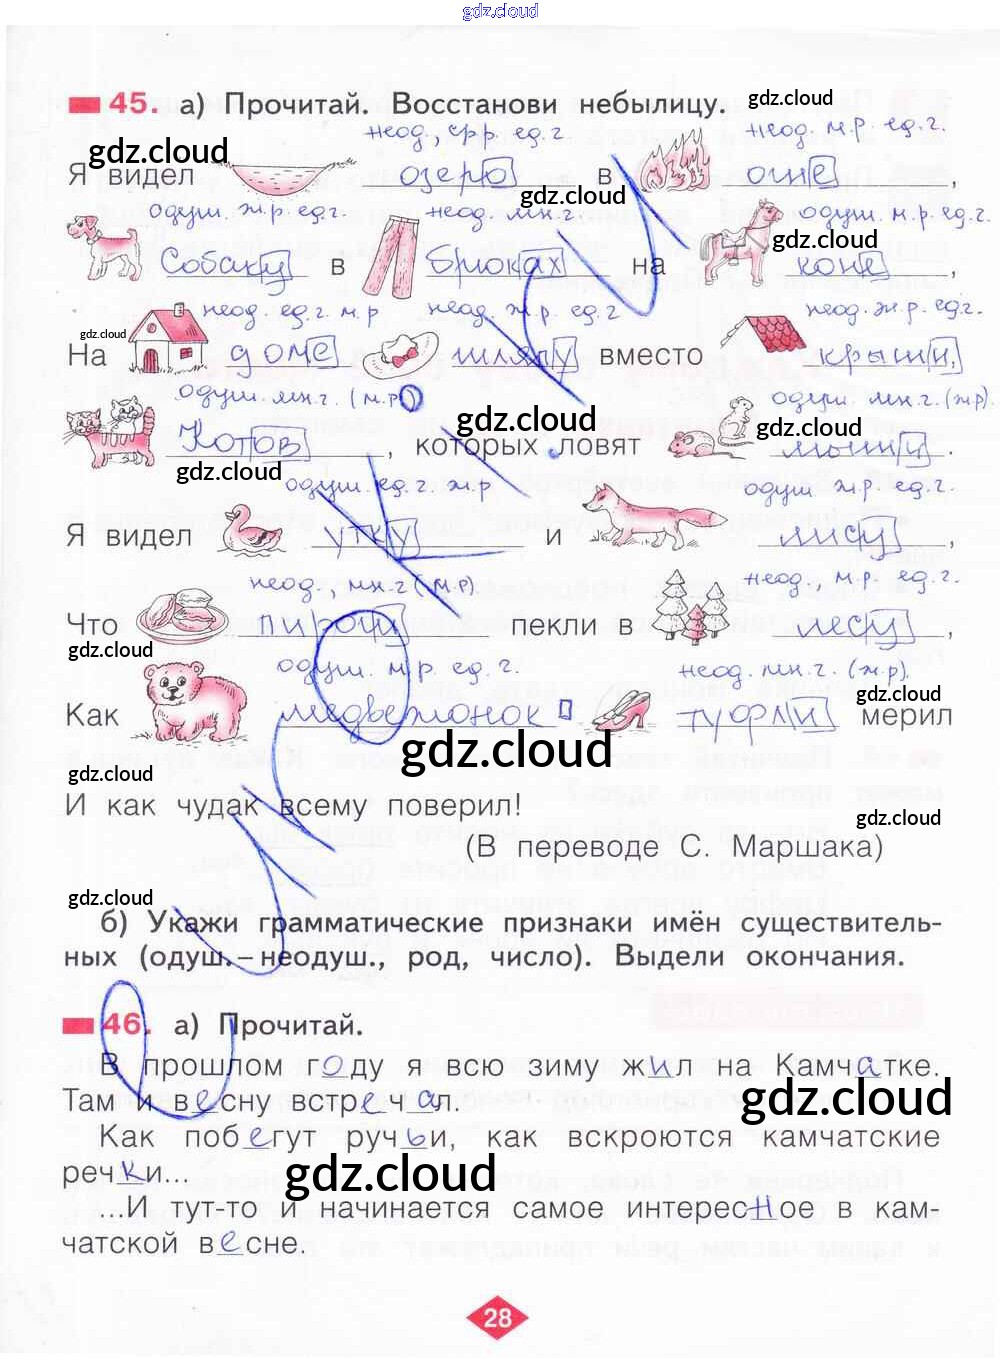 gdz.cloud
45. а) Прочитай. Восстанови небылицу. gdz.cloud
неод., ср.р. ед.г. неод. м.р. ед.г.
gdz.cloud
Я видел озеро в огне,
gdz.cloud
одуш. ж.р. ед.г. неод. мн.г одуш. м.р. ед.г.
gdz.cloud
Собаку в брюках на коне,
неод. ед.г. м.р неод. ж.р. ед.г неод. ж.р. ед.г.
gdz.cloud
На доме шляпу вместо крыши,
одуш. мн.г. (м.р) одуш. мн.г. (ж.р)
gdz.cloud gdz.cloud
Котов, которых ловят мыши.
gdz.cloud
одуш. ед.г. ж.р одуш ж.р. ед.г.
Я видел утку и лису,
неод., мн.г (м.р) неод., м.р. ед.г.
Что пироги пекли в лесу,
gdz.cloud
одуш. м.р. ед.г. неод. мн.г. (ж.р).
gdz.cloud
Как медвежонок туфли мерил
gdz.cloud
gdz.cloud
И как чудак всему поверил!
gdz.cloud
(В переводе С. Маршака)
gdz.cloud
б) Укажи грамматические признаки имён существитель-
ных (одуш.–неодуш., род, число). Выдели окончания.
46. а) Прочитай.
В прошлом году я всю зиму жил на Камчатке.
gdz.cloud
Там и весну встречал.
Как побегут ручьи, как вскроются камчатские
речки...
gdz.cloud
...И тут-то и начинается самое интересное в кам-
чатской весне.
28